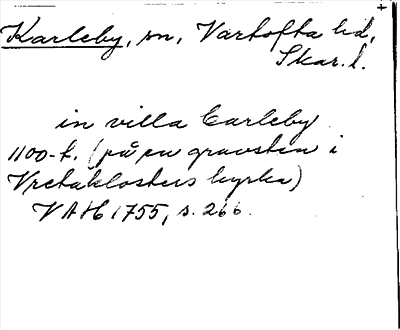 Karleby, sn, Vartofta hd,
Skar. l.
in villa Carleby
1100-t. (på en gravsten i
Vretaklosters kyrka)
VAH 1755, s. 266.